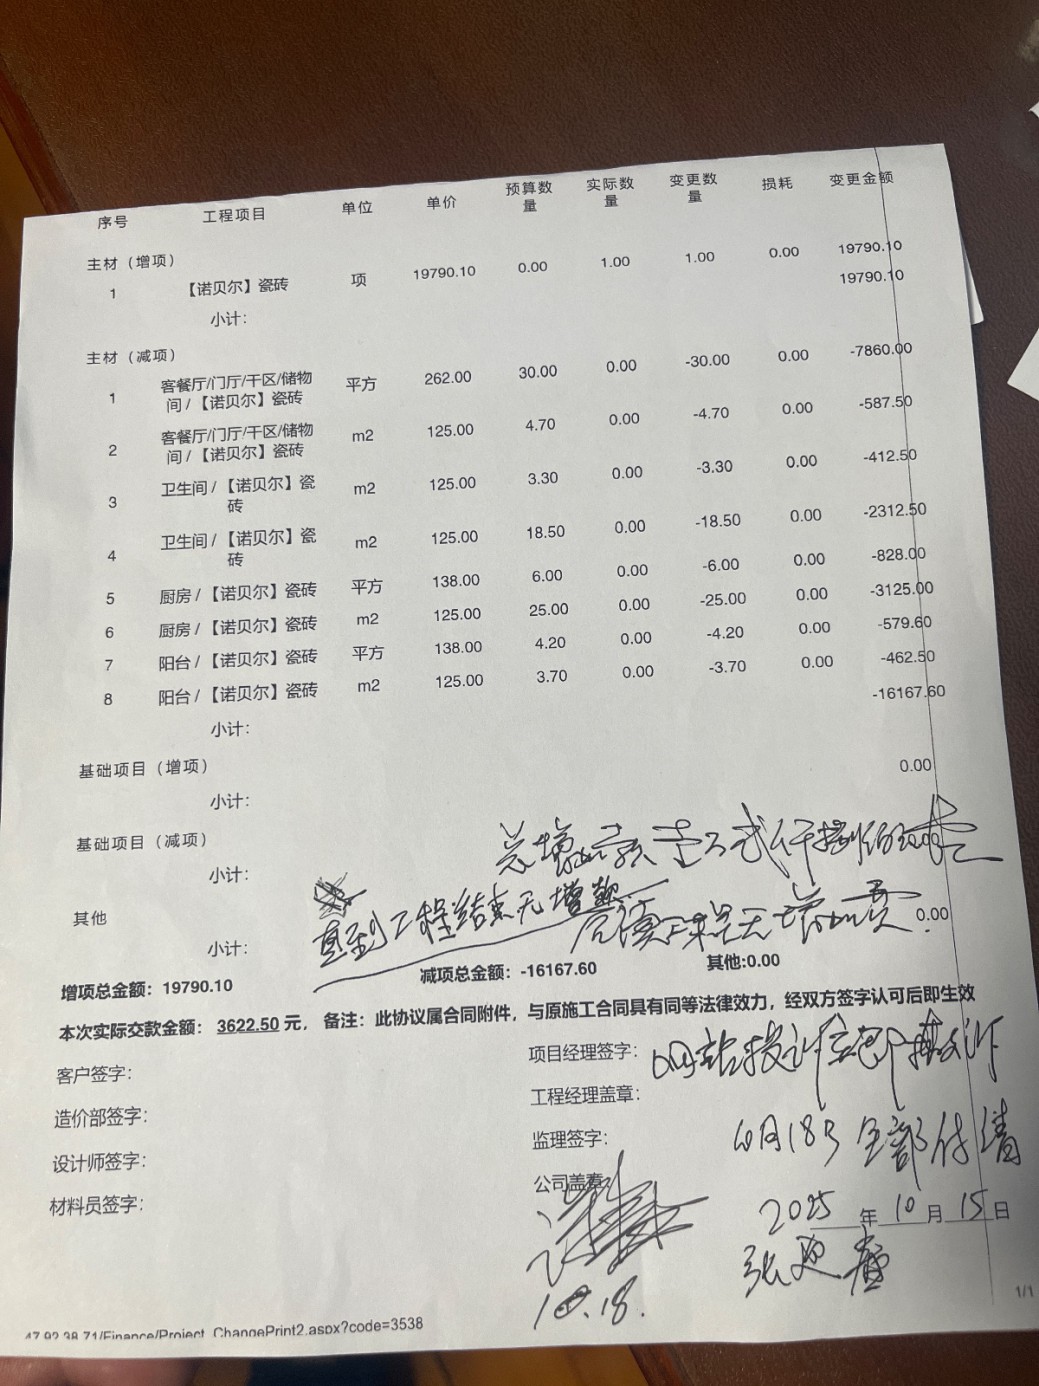 序号 工程项目 单位 单价 预算数量 实际数量 变更数量 损耗 变更金额
主材（增项） 19790.10
1 【诺贝尔】瓷砖 项 19790.10 0.00 1.00 1.00 0.00 19790.10
小计：
主材（减项）
1 客餐厅/门厅/干区/储物间 /【诺贝尔】瓷砖 平方 262.00 30.00 0.00 -30.00 0.00 -7860.00
2 客餐厅/门厅/干区/储物间 /【诺贝尔】瓷砖 m2 125.00 4.70 0.00 -4.70 0.00 -587.50
3 卫生间 /【诺贝尔】瓷砖 m2 125.00 3.30 0.00 -3.30 0.00 -412.50
4 卫生间 /【诺贝尔】瓷砖 m2 125.00 18.50 0.00 -18.50 0.00 -2312.50
5 厨房 /【诺贝尔】瓷砖 平方 138.00 6.00 0.00 -6.00 0.00 -828.00
6 厨房 /【诺贝尔】瓷砖 m2 125.00 25.00 0.00 -25.00 0.00 -3125.00
7 阳台 /【诺贝尔】瓷砖 平方 138.00 4.20 0.00 -4.20 0.00 -579.60
8 阳台 /【诺贝尔】瓷砖 m2 125.00 3.70 0.00 -3.70 0.00 -462.50
小计： -16167.60
基础项目（增项）
小计： 0.00
基础项目（减项）
总增加款
小计：
直到工程结束无增款
其他
小计： 0.00
增项总金额：19790.10 减项总金额：-16167.60 其他:0.00
本次实际交款金额： 3622.50 元， 备注：此协议属合同附件，与原施工合同具有同等法律效力，经双方签字认可后即生效
客户签字： 项目经理签字：
网站投诉立即撤诉
造价部签字： 工程经理盖章：
设计师签字： 监理签字：
10月18号全部付清
材料员签字： 公司盖章：
2025 年 10 月 15 日
10.18.
47.92.38.71/Finance/Project_ChangePrint2.aspx?code=3538 1/1